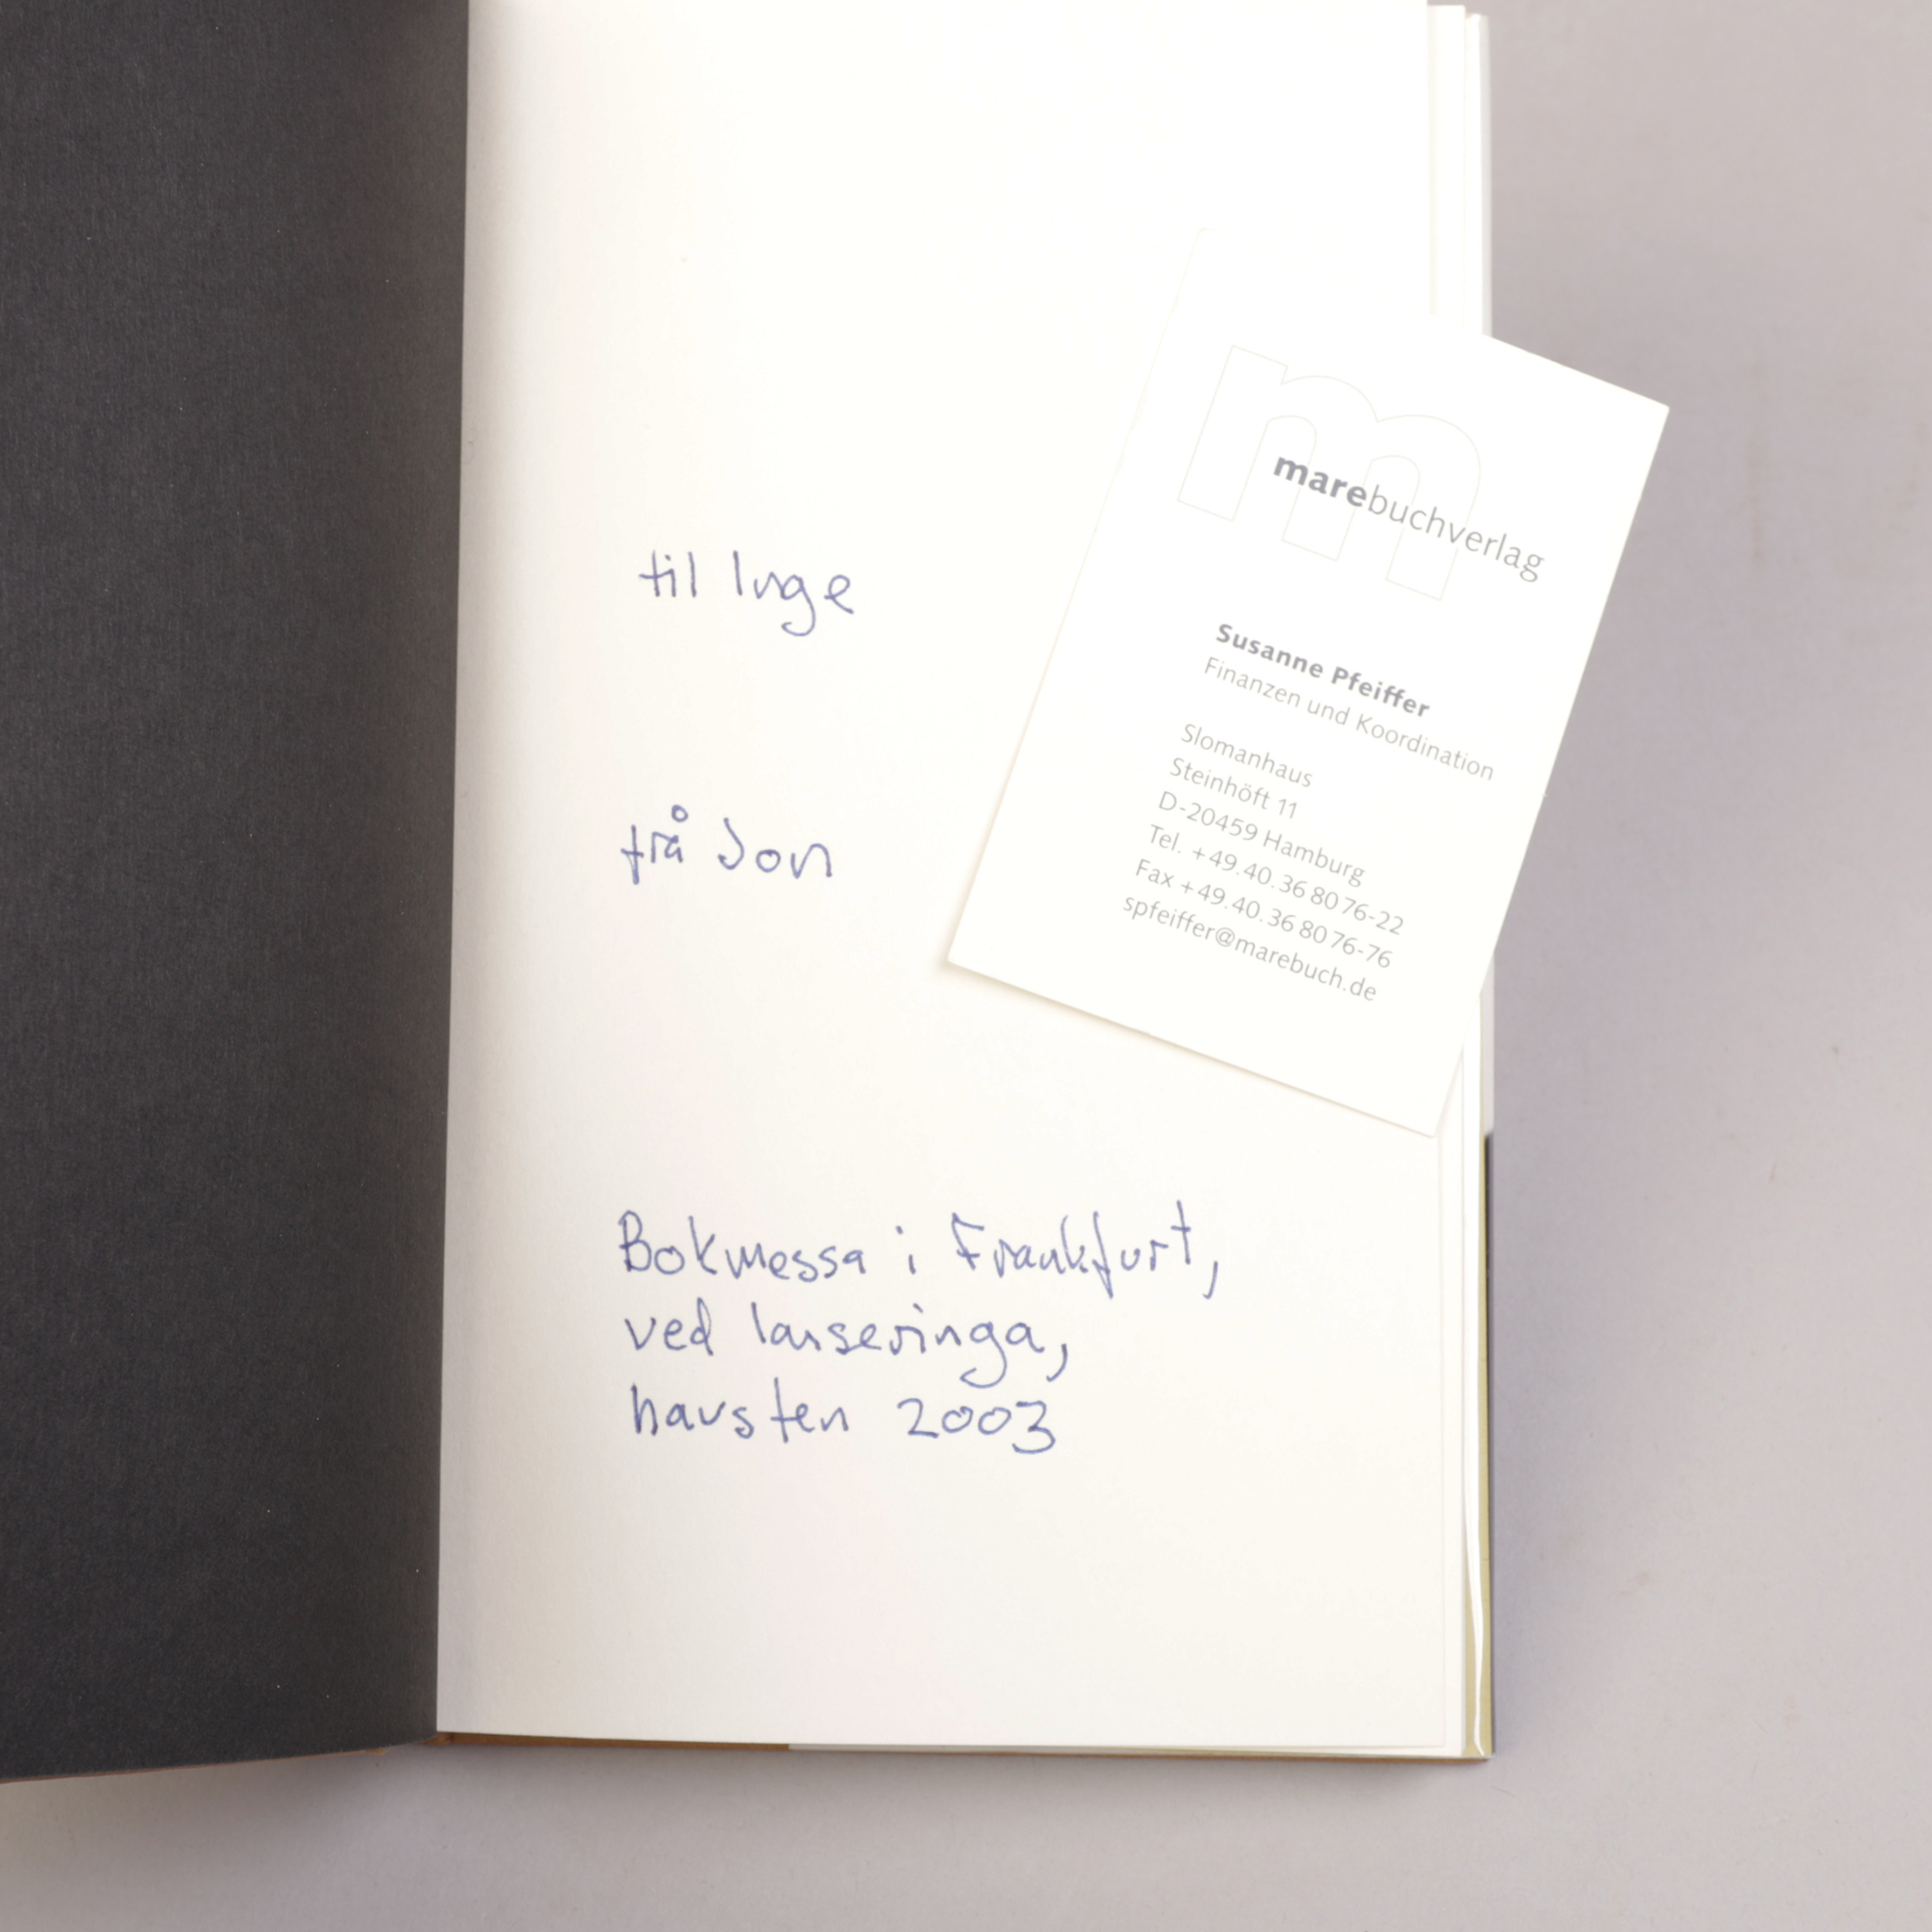 til Inge
frå Jon
Bokmessa i Frankfurt,
ved lanseringa,
hausten 2003
m
marebuchverlag
Susanne Pfeiffer
Finanzen und Koordination
Slomanhaus
Steinhöft 11
D-20459 Hamburg
Tel. +49.40.36 80 76-22
Fax +49.40.36 80 76-76
spfeiffer@marebuch.de